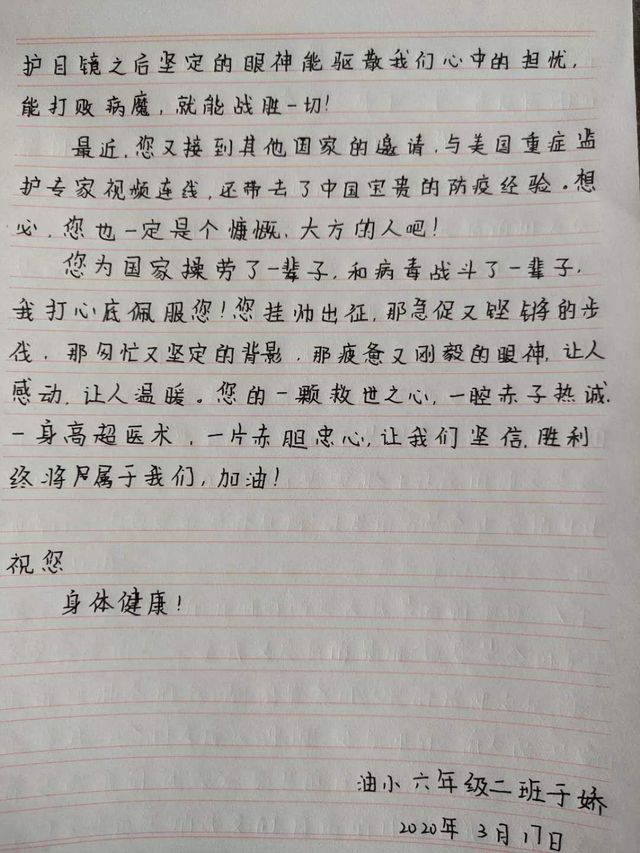 护目镜之后坚定的眼神能驱散我们心中的担忧,
能打败病魔,就能战胜一切!
最近,您又接到其他国家的邀请,与美国重症监
护专家视频连线,还带去了中国宝贵的防疫经验。想
必,您也一定是个慷慨、大方的人吧!
您为国家操劳了一辈子,和病毒战斗了一辈子,
我打心底佩服您!您挂帅出征,那急促又铿锵的步
伐,那匆忙又坚定的背影,那疲惫又刚毅的眼神,让人
感动,让人温暖。您的一颗救世之心,一腔赤子热诚,
一身高超医术,一片赤胆忠心,让我们坚信,胜利
终将属于我们,加油!
祝您
身体健康!
油小六年级二班于娇
2020年3月17日